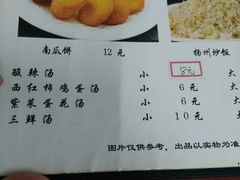 南瓜饼 12元 扬州炒饭
酸辣汤 小 8元 大
西红柿鸡蛋汤 小 6元 大
紫菜蛋花汤 小 6元 大
三鲜汤 小 10元 大
图片仅供参考，出品以实物为准